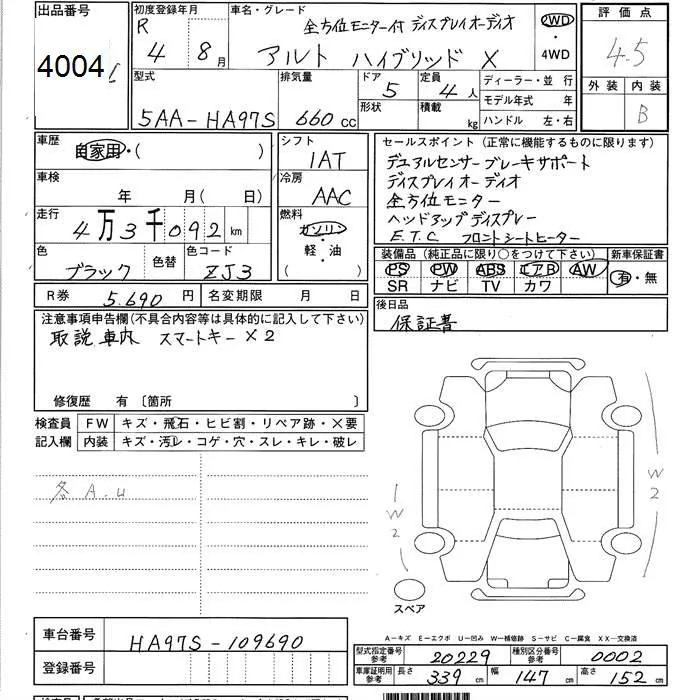 出品番号
4004
初度登録年月
R 4 年 8 月
車名・グレード
全方位モニター付 ディスプレイオーディオ
アルト ハイブリッド X
2WD
・
4WD
評価点
4.5
外装 内装
B
型式
5AA-HA97S
排気量
660 cc
ドア
5
定員
4 人
形状
積載
kg
ディーラー・並行
モデル年式 年
ハンドル 左・右
車歴
自家用・( )
シフト
IAT
車検
年 月( 日)
冷房
AAC
走行
4万3千092 km
燃料
ガソリン
・
軽・油
( )
色
ブラック
色替
色コード
ZJ3
セールスポイント (正常に機能するものに限ります)
デュアルセンサーブレーキサポート
ディスプレイオーディオ
全方位モニター
ヘッドアップディスプレー
E.T.C フロントシートヒーター
装備品 (純正品に限り○をつけて下さい)
PS PW ABS エアB AW
SR ナビ TV カワ
新車保証書
有・無
R券 5.690 円
名変期限 月 日
後日品
保証書
注意事項申告欄(不具合内容等は具体的に記入して下さい)
取説車内 スマートキー×2
修復歴 有 〔箇所 〕
検査員
記入欄
FW キズ・飛石・ヒビ割・リペア跡・×要
内装 キズ・汚レ・コゲ・穴・スレ・キレ・破レ
各A.U
W2
W2
スペア
車台番号
HA97S-109690
登録番号
A―キズ E―エクボ U―凹み W―補修跡 S―サビ C―腐食 XX―交換済
型式指定番号
参考
20229
種別区分番号
参考
0002
車庫証明用
参考
長さ
339 cm
幅
147 cm
高さ
152 cm